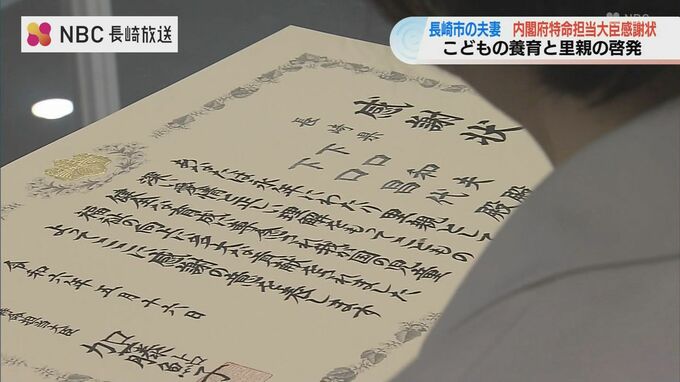 NBC 長崎放送
長崎市の夫妻 内閣府特命担当大臣感謝状
こどもの養育と里親の啓発
感謝状
長崎県
下口和夫殿
下口昌代殿
あなたは永年にわたり里親として
深い愛情と正しい理解をもってこどもの
健全な育成に尽力され我が国の児童
福祉の向上に多大な貢献をされました
よってここに感謝の意を表します
令和六年五月十六日
担当大臣
加藤鮎子